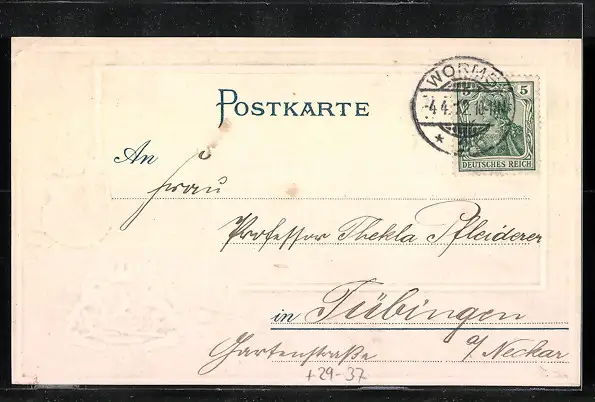 WORMS
-4.4.12.10-11V
5
DEUTSCHES REICH
POSTKARTE
An
Frau
Professor Thekla Pfleiderer
in Tübingen
Gartenstraße a/ Neckar
+29-37